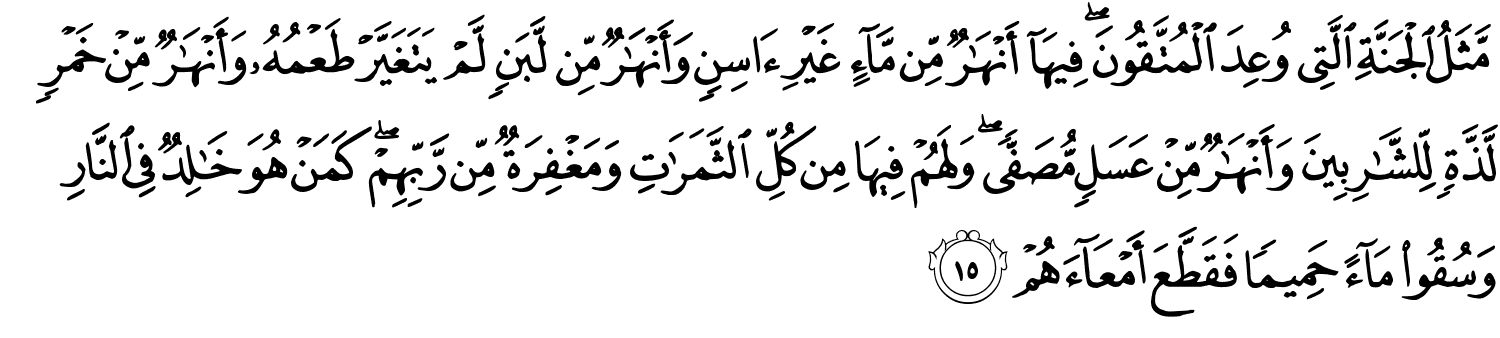 مَّثَلُ ٱلْجَنَّةِ ٱلَّتِى وُعِدَ ٱلْمُتَّقُونَ ۖ فِيهَآ أَنْهَـٰرٌ مِّن مَّآءٍ غَيْرِ ءَاسِنٍ وَأَنْهَـٰرٌ مِّن لَّبَنٍ لَّمْ يَتَغَيَّرْ طَعْمُهُۥ وَأَنْهَـٰرٌ مِّنْ خَمْرٍ
لَّذَّةٍ لِّلشَّـٰرِبِينَ وَأَنْهَـٰرٌ مِّنْ عَسَلٍ مُّصَفًّى ۖ وَلَهُمْ فِيهَا مِن كُلِّ ٱلثَّمَرَٰتِ وَمَغْفِرَةٌ مِّن رَّبِّهِمْ ۖ كَمَنْ هُوَ خَـٰلِدٌ فِى ٱلنَّارِ
وَسُقُوا۟ مَآءً حَمِيمًا فَقَطَّعَ أَمْعَآءَهُمْ ١٥